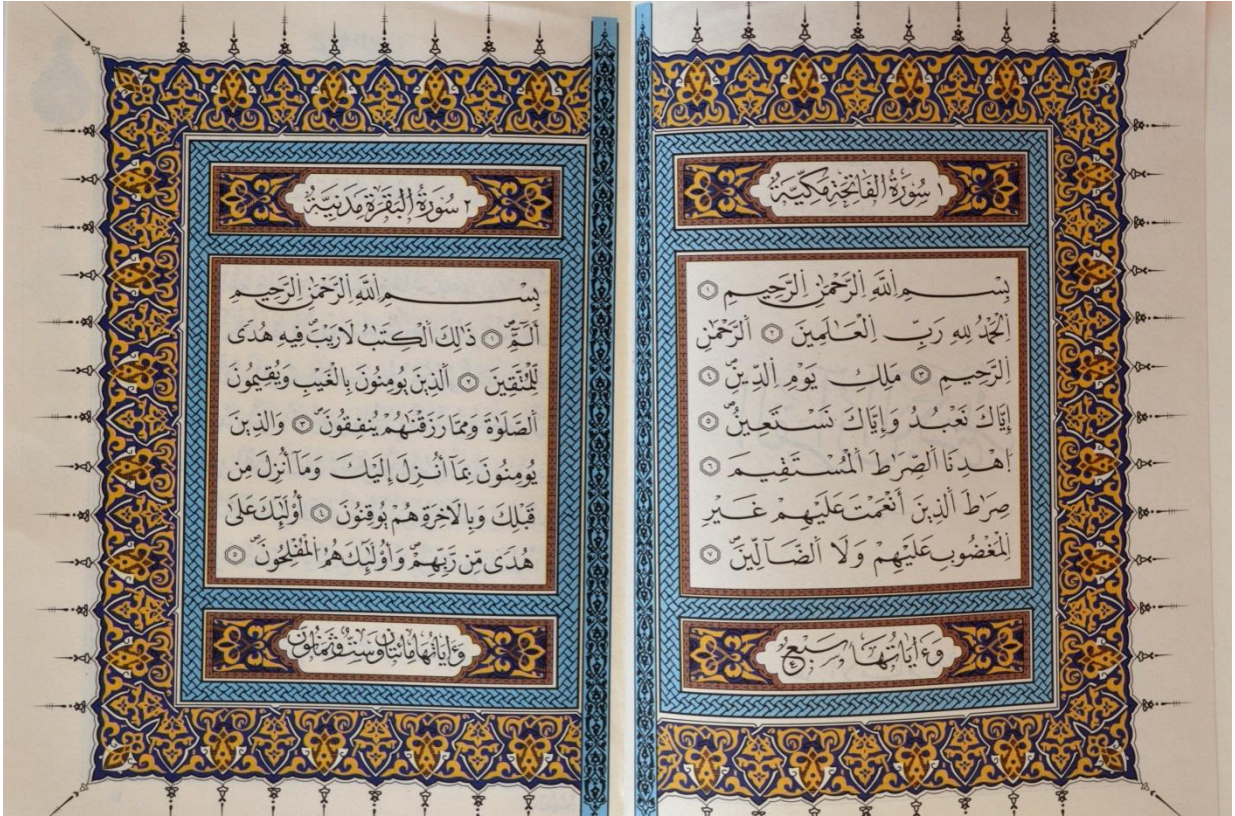 ١ سُورَةُ الفَاتِحَةِ مَكِّيَّةٌ
بِسْمِ اِ۬للَّهِ اِ۬لرَّحْمَٰنِ اِ۬لرَّحِيمِ ١
اَ۬لْحَمْدُ لِلهِ رَبِّ اِ۬لْعَٰلَمِينَ ٢ اَ۬لرَّحْمَٰنِ
اِ۬لرَّحِيمِ ٣ مَلِكِ يَوْمِ اِ۬لدِّينِۖ ٤
إِيَّاكَ نَعْبُدُ وَإِيَّاكَ نَسْتَعِينُۖ ٥
اُ۪هْدِنَا اَ۬لصِّرَٰطَ اَ۬لْمُسْتَقِيمَ ٦
صِرَٰطَ اَ۬لذِينَ أَنْعَمْتَ عَلَيْهِمْ غَيْرِ
اِ۬لْمَغْضُوبِ عَلَيْهِمْ وَلَا اَ۬لضَّآلِّينَۖ ٧
وَءَايَاتُهَا سَبْعٌ
٢ سُورَةُ البَقَرَةِ مَدَنِيَّةٌ
بِسْمِ اِ۬للَّهِ اِ۬لرَّحْمَٰنِ اِ۬لرَّحِيمِ
أَلَٓمِّٓۖ ١ ذَٰلِكَ اَ۬لْكِتَٰبُ لَا رَيْبَۖ فِيهِ هُدىٗ
لِّلْمُتَّقِينَ ٢ اَ۬لذِينَ يُومِنُونَ بِالْغَيْبِ وَيُقِيمُونَ
اَ۬لصَّلَوٰةَ وَمِمَّا رَزَقْنَٰهُمْ يُنفِقُونَۖ ٣ وَالذِينَ
يُومِنُونَ بِمَآ أُنزِلَ إِلَيْكَ وَمَآ أُنزِلَ مِن
قَبْلِكَ وَبِالَاخِرَةِ هُمْ يُوقِنُونَ ٤ أُوْلَٰٓئِكَ عَلَىٰ
هُدىٗ مِّن رَّبِّهِمْۖ وَأُوْلَٰٓئِكَ هُمُ اُ۬لْمُفْلِحُونَۖ ٥
وَءَايَاتُهَا مِائَتَانِ وَسِتٌّ وَثَمَانُونَ